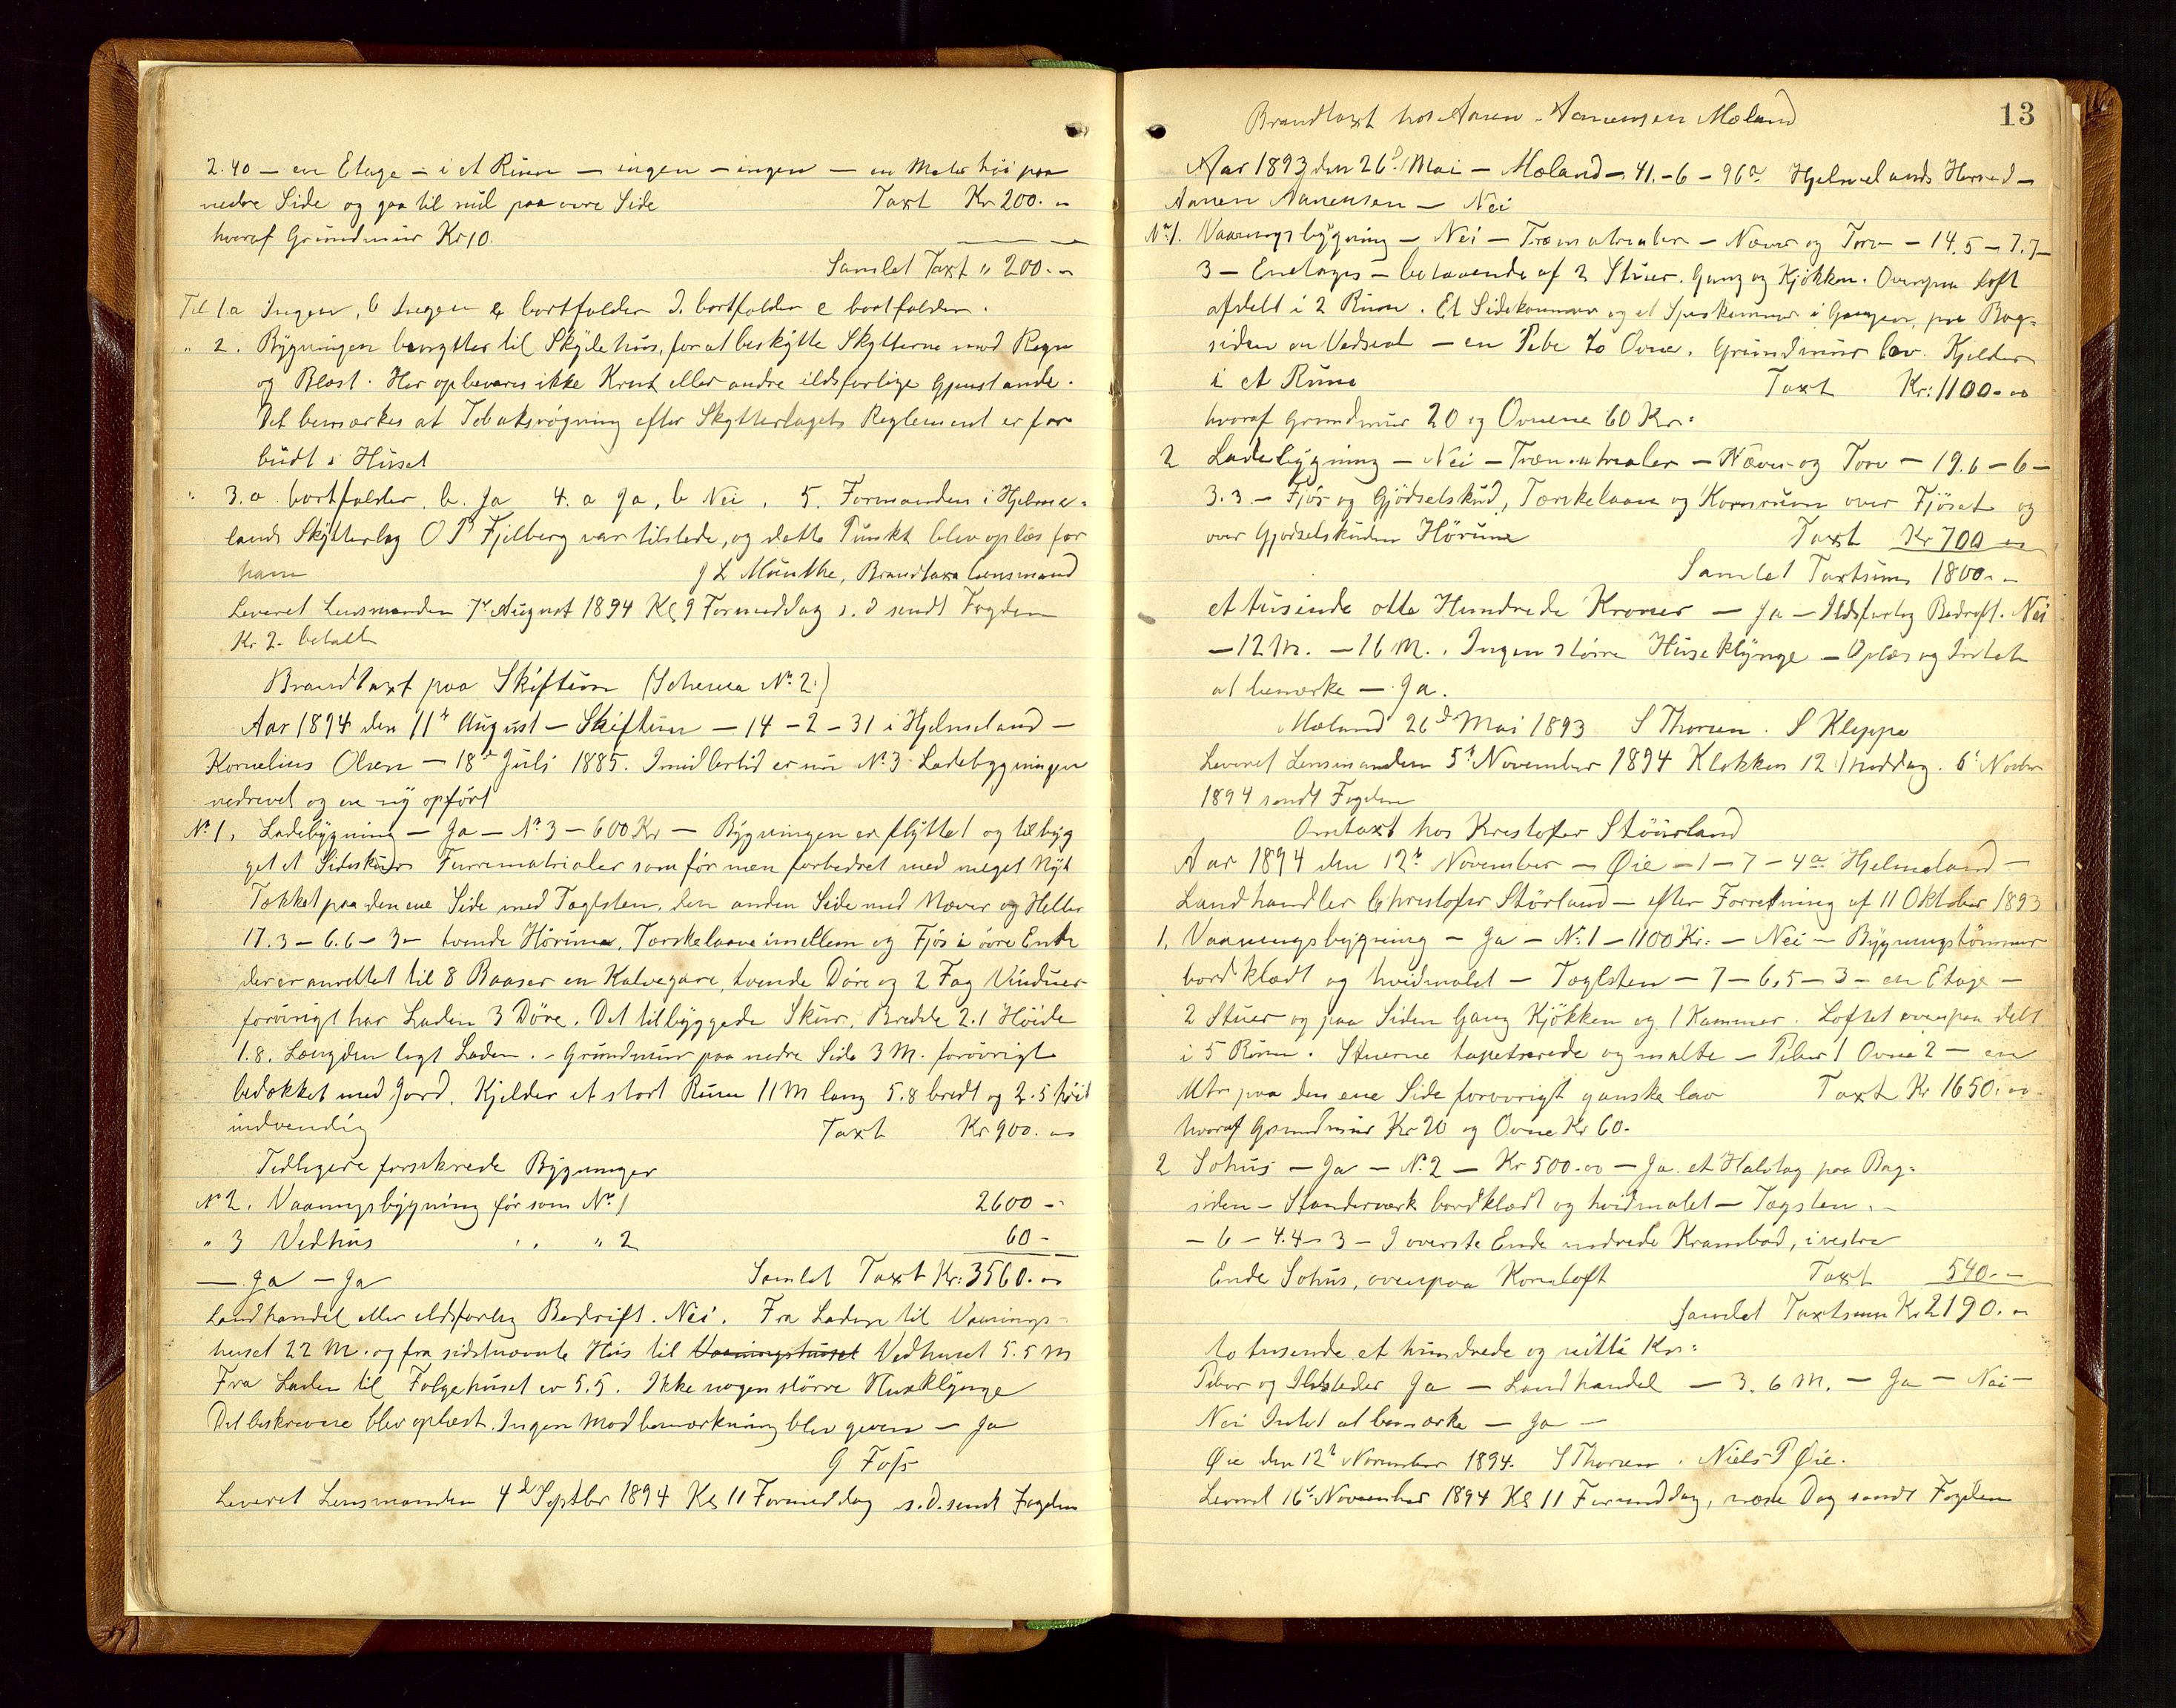 2.40 – en Etage – i et Rum – ingen – ingen – en Meter høi paa
nedre Side og gaa til nul paa øvre Side Taxt Kr 200.00
hvoraf Grundmur Kr 10.
Samlet Taxt " 200.00
Til 1.a Ingen, b Ingen c bortfalder d. bortfalder e bortfalder.
" 2. Bygningen benyttes til Skydehus, for at beskytte Skytterne mod Regn
og Blæst. Her opbevares ikke Krut eller andre ildsfarlige Gjenstande.
Det bemærkes at Tobaksrøgning efter Skytterlagets Reglement er for
budt i Huset
" 3.a bortfalder. b. Ja 4. a Ja, b Nei. 5. Formanden i Hjelme-
lands Skytterlag O P Fjelberg var tilstede, og dette Punkt blev oplæs for
ham J L Munthe, Brandtaxa Lensmand
Leveret Lensmanden 7de August 1894 Kl 9 Formeddag s. d sendt Fogden
Kr 2. betalt
Brandtaxt paa Skiftun (Schema No 2.)
Aar 1894 den 11te August – Skiftun – 14 – 2 – 31 i Hjelmeland –
Kornelius Olsen – 18de Juli 1885. Imidlertid er nu No 3 Ladebygningen
nedrevet og en ny opført
No 1. Ladebygning – Ja – No 3 – 600 Kr – Bygningen er flyttet og tilbyg
get et Sideskur Furrematrialer som før men forbedret med meget Nyt
Tækket paa den ene Side med Taglsten, den anden Side med Næver og Heller
17.3 – 6.6 – 3 – tvende Hørume, Tærskelaave imellem og Fjøs i øvre Ende
der er anrettet til 8 Baaser en Kalvegare, tvende Døre og 2 Fag Vinduer
forøvrigt har Laden 3 Døre. Det tilbyggede Skur, Bredde 2.1 Høide
1.8. Længden lagt Laden. – Grundmur paa nedre Side 3 M. forøvrigt
bedækket med Jord. Kjelder et stort Rum 11 M lang 5.8 bredt og 2.5 høit
indvendig Taxt Kr 900.00
Tidligere forsikrede Bygninger
No 2. Vaaningsbygning før som No 1 2600 –
" 3 Vedhus " " " 2 60 –
– Ja – Ja Samlet Taxt Kr: 3560.00
Landhandel eller ildsfarlig Bedrift. Nei. Fra Laden til Vaanings-
huset 22 M. og fra sidstnævnte Hus til Vaaningshuset Vedhuset 5.5 M
Fra Laden til Følgehuset er 5.5. Ikke nogen større Husklynge
Det beskrevene blev oplæst. Ingen Modbemærkning blev given – Ja
G Foss
Leveret Lensmanden 4de Septbr 1894 Kl 11 Formeddag s. d. sendt Fogden
13
Brandtaxt hos Aanen Aanensen Mæland
Aar 1893 den 26de Mai – Mæland – 41. – 6 – 96 a Hjelmelands Herred –
Aanen Aanensen – Nei
No 1. Vaaningsbygning – Nei – Træmatrialer – Næver og Torv – 14.5 – 7.7 –
3 – Enetages – bestaaende af 2 Stuer. Gang og Kjøkken. Ovenpaa Loft
afdelt i 2 Rum. Et Sidekammer og et Spiskammer i Gangen, paa Bag-
siden en Vedsval – en Pibe To Ovne. Grundmur lav. Kjelder
i et Rum Taxt Kr: 1100.00
hvoraf Grundmur 20 og Ovnene 60 Kr:
2 Ladebygning – Nei – Træmatrealer – Næver og Torv – 19.6 – 6 –
3.3 – Fjøs og Gjødselskud, Tærskelaave og Kornrum over Fjøset og
over Gjødselskuden Hørum Taxt Kr 700 00
Samlet Taxtsum 1800.00
et tusinde otte Hundrede Kroner – Ja – Ildsfarlig Bedrift. Nei
– 12 M. – 16 M. . Ingen større Huseklynge – Oplæs og Intet
at bemærke – Ja.
Mæland 26de Mai 1893 S Thorsen. S Kleppe
Leveret Lensmanden 5te November 1894 Klokken 12 Middag. 6te Novbr
1894 sendt Fogden
Omtaxt hos Kristofer Størland
Aar 1894 den 12te November – Øie – 1 – 7 – 4 a Hjelmeland –
Landhandler Christofer Størland – efter Forretning af 11 Oktober 1893
1. Vaaningsbygning – Ja – No 1 – 1100 Kr: – Nei – Bygningstømmer
bordklædt og hvidmalet – Taglsten – 7 – 6,5 – 3 – en Etage –
2 Stuer og paa Siden Gang Kjøkken og 1 Kammer. Loftet ovenpaa delt
i 5 Rum. Stuerne tapetserede og malte – Piber 1 Ovne 2 – en
Mtr paa den ene Side forøvrigt ganske lav Taxt Kr 1650.00
hvoraf Grundmur Kr 20 og Ovne Kr 60.
2 Søhus – Ja – No 2 – Kr 500.00 – Ja. et Halvtag paa Bag-
siden – Standerværk bordklædt og hvidmalet – Tagsten. –
– 6 – 4.4 – 3 – I øverste Ende nedrede Krambod, i vestre
Ende Søhus, ovenpaa Kornloft Taxt 540.–
Samlet Taxtsum Kr 2190.00
to tusende et hundrede og nitti Kr:
Piber og Ildsteder Ja – Landhandel – 3. 6 M. – Ja – Nei –
Nei Intet at bemærke – Ja –
Øie den 12te November 1894. S Thorsen. Niels P Øie.
Leveret 16de November 1894 Kl 11 Formeddag, næste Dag sendt Fogden